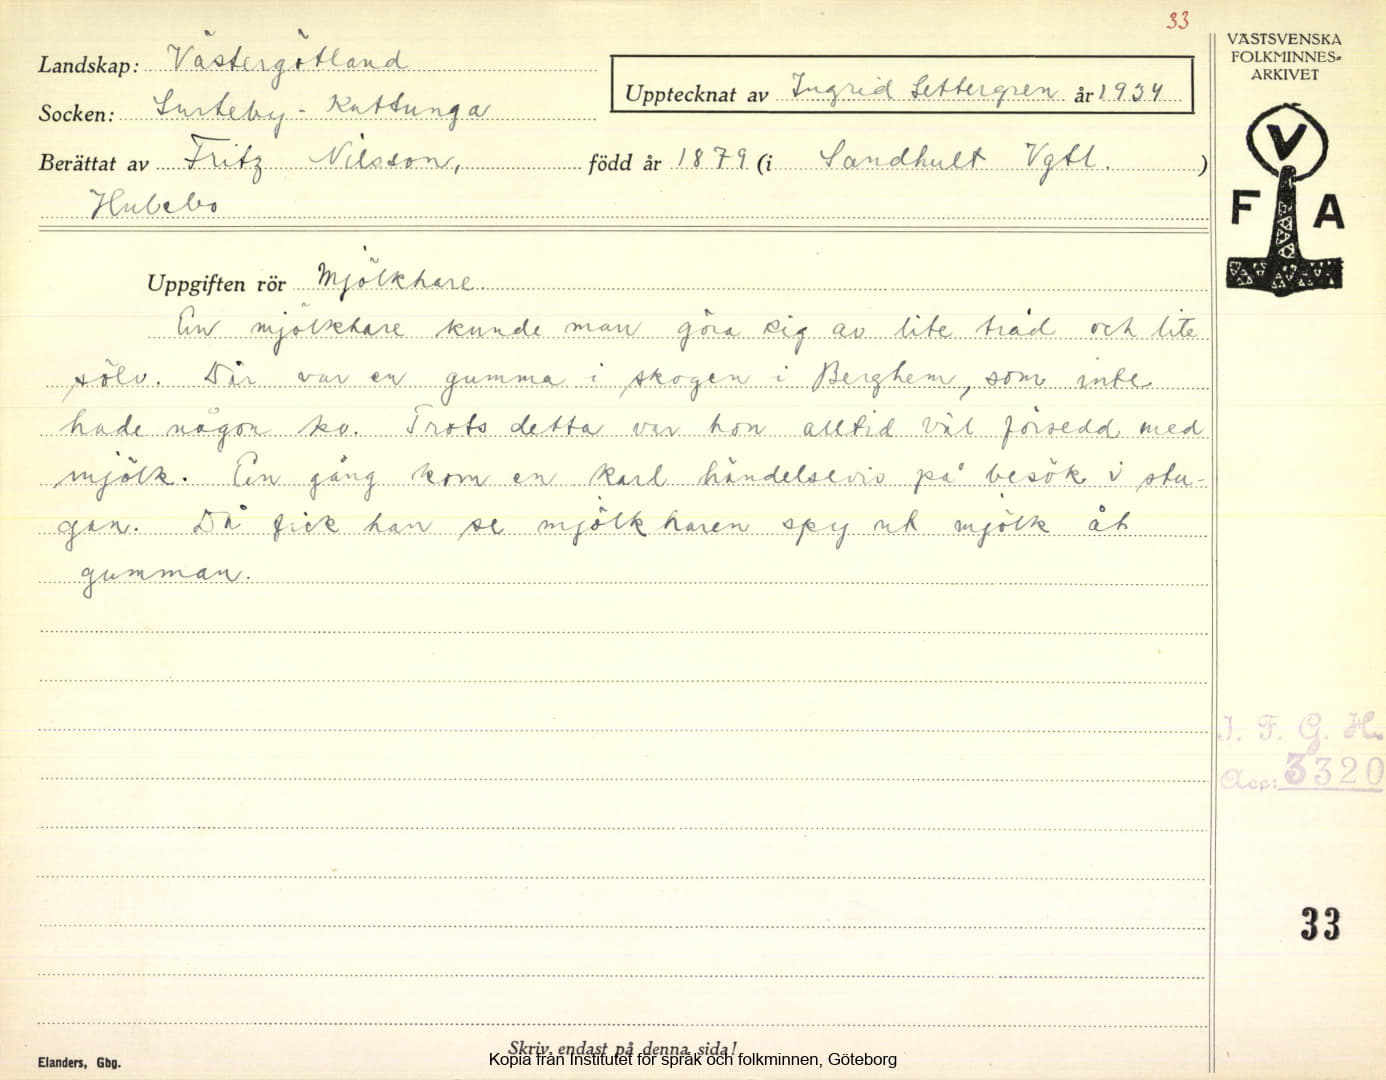 33
Landskap: Västergötland
Socken: Surteby - Kattunga
Upptecknat av Ingrid Settergren år 1934
Berättat av Fritz Nilsson, född år 1879 (i Sandhult Vgtl. )
Hulebo
VÄSTSVENSKA
FOLKMINNES-
ARKIVET
V
F A
Uppgiften rör Mjölkhare.
En mjölkhare kunde man göra sig av lite tråd och lite
sölv. Där var en gumma i skogen i Berghem, som inte
hade någon ko. Trots detta var hon alltid väl försedd med
mjölk. En gång kom en karl händelsevis på besök i stu-
gan. Då fick han se mjölkharen spy ut mjölk åt
gumman.
I. F. G. H.
Acc: 3320
33
Skriv endast på denna sida!
Elanders, Gbg.
Kopia från Institutet för språk och folkminnen, Göteborg